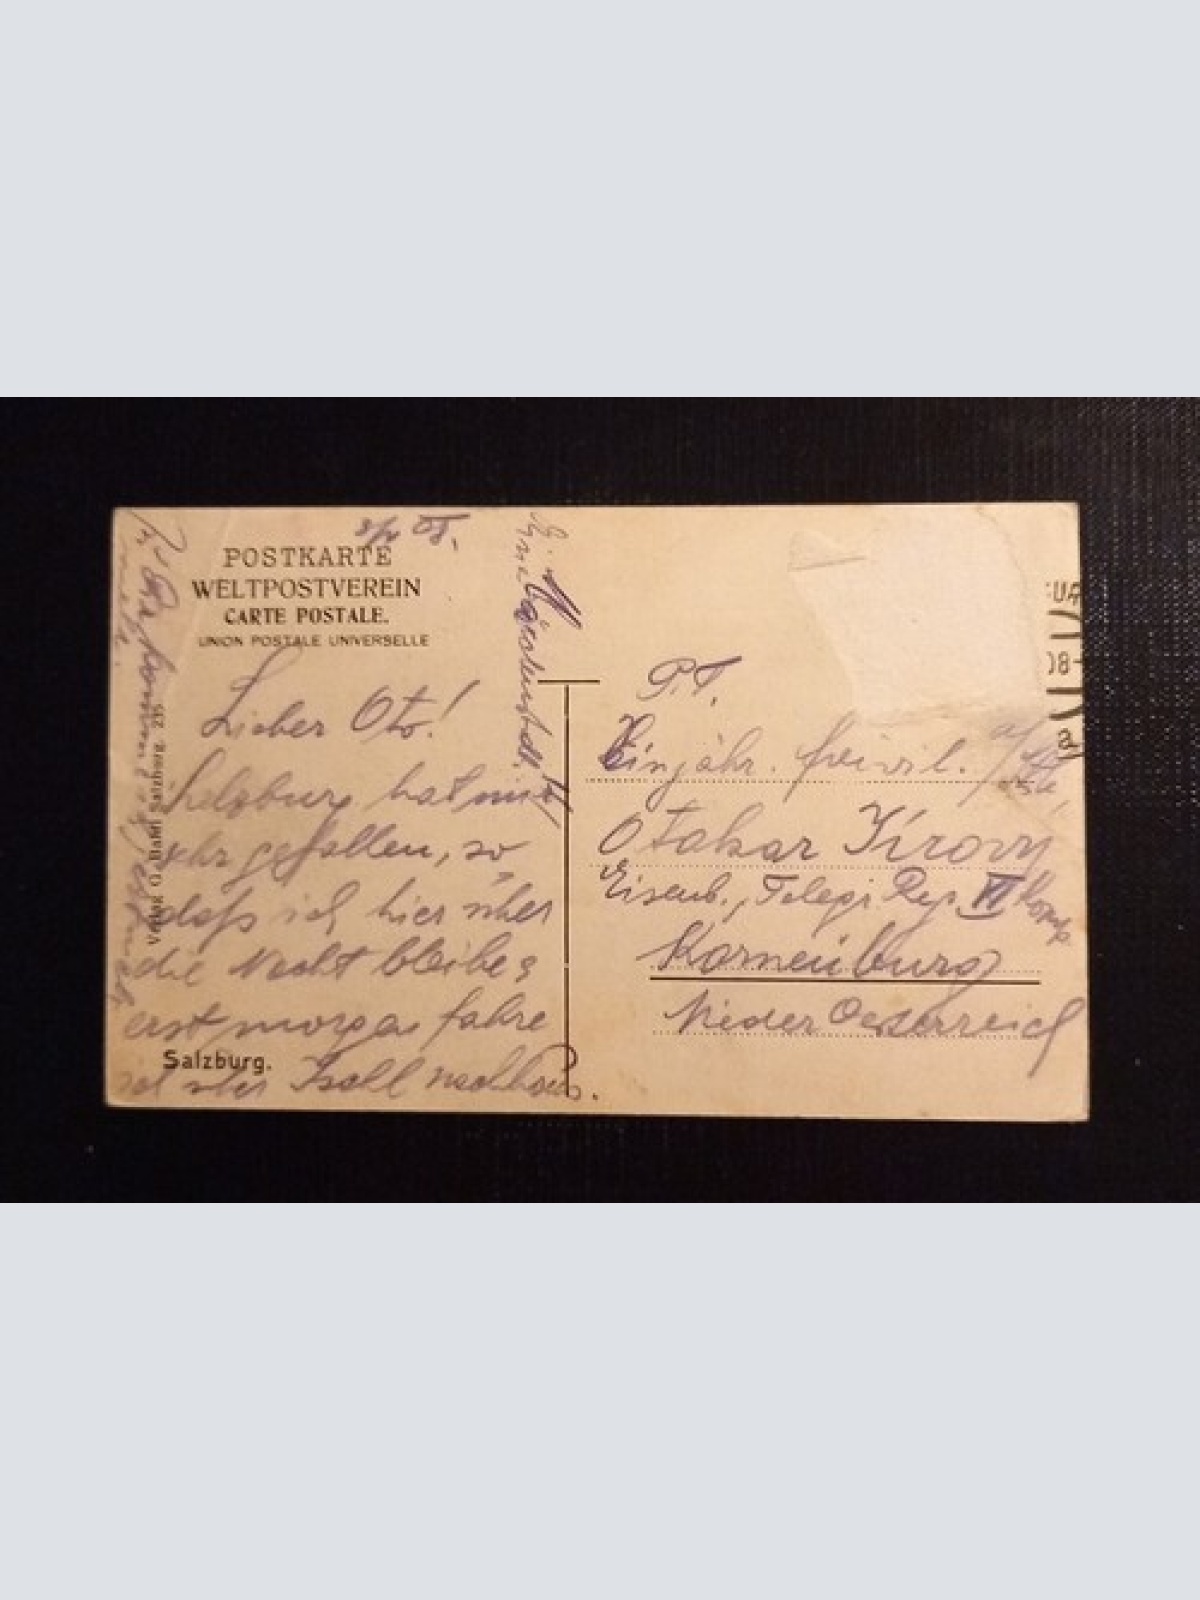 POSTKARTE
WELTPOSTVEREIN
CARTE POSTALE.
UNION POSTALE UNIVERSELLE
Lieber Oto!
Salzburg hat mir
sehr gefallen, so
daß ich hier über
die Nacht bleibe &
erst morgen fahre
ich über Ischl nachhaus.
Verlag G. Baldi, Salzburg. 235
Salzburg.
P.T.
Einjähr. freiwil.
Otakar Kirovy
Eisenb., Telegr. Reg. VI Komp.
Korneuburg
Nieder Oesterreich
08-
a